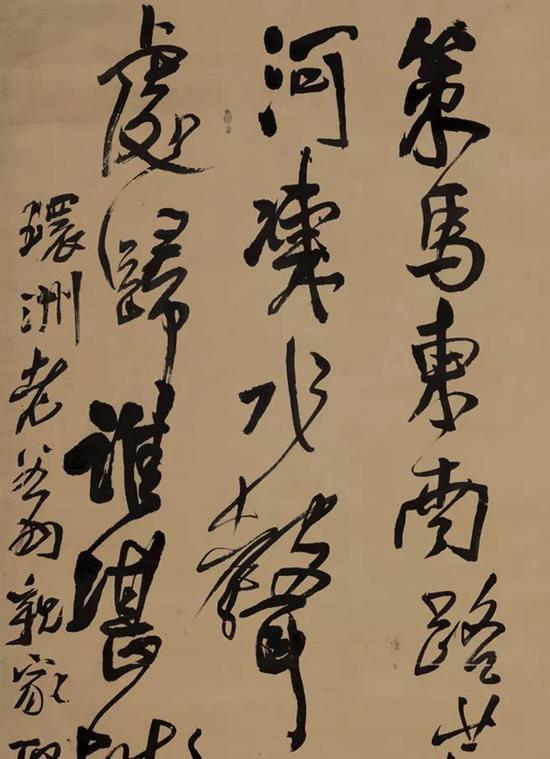 策馬東南路
河水聲
處歸誰堪
環洲老翁親家